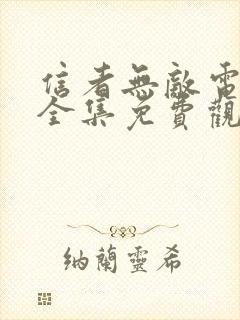 信者無敵電
全集免費觀
納蘭靈希